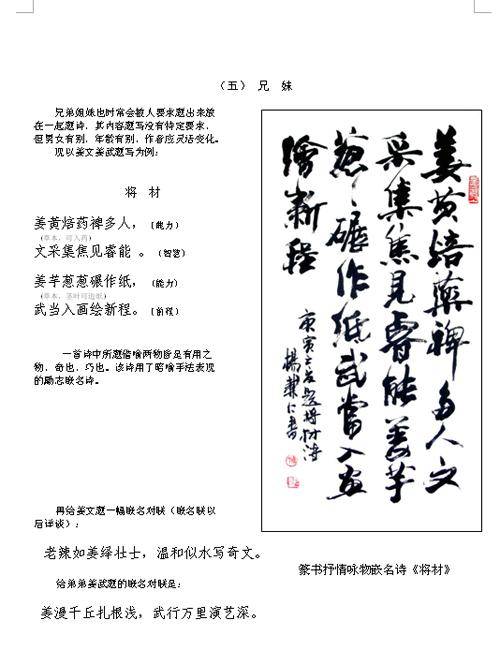 （五） 兄 妹
兄弟姐妹也时常会被人要求题出来放
在一起题诗，其内容题写没有特定要求，
但男女有别，年龄有别，作者应灵活变化。
现以姜文姜武题写为例：
将 材
姜黄焙药裨多人，（能力）
（草本，可入药）
文采集焦见睿能 。（智慧）
姜芋葱葱碾作纸，（能力）
（草本，茎叶可造纸）
武当入画绘新程。（前程）
一首诗中所题借喻两物皆是有用之
物，奇也，巧也。该诗用了暗喻手法表现
的励志嵌名诗。
再给姜文题一幅嵌名对联（嵌名联以
后详谈）：
老辣如姜绎壮士，温和似水写奇文。
给弟弟姜武题的嵌名对联是：
姜漫千丘扎根浅，武行万里演艺深。
姜黄焙药裨多人文
采集焦见睿能姜芋
葱々碾作纸武当入画
绘新程
庚寅之春题将材诗
篆书抒情咏物嵌名诗《将材》